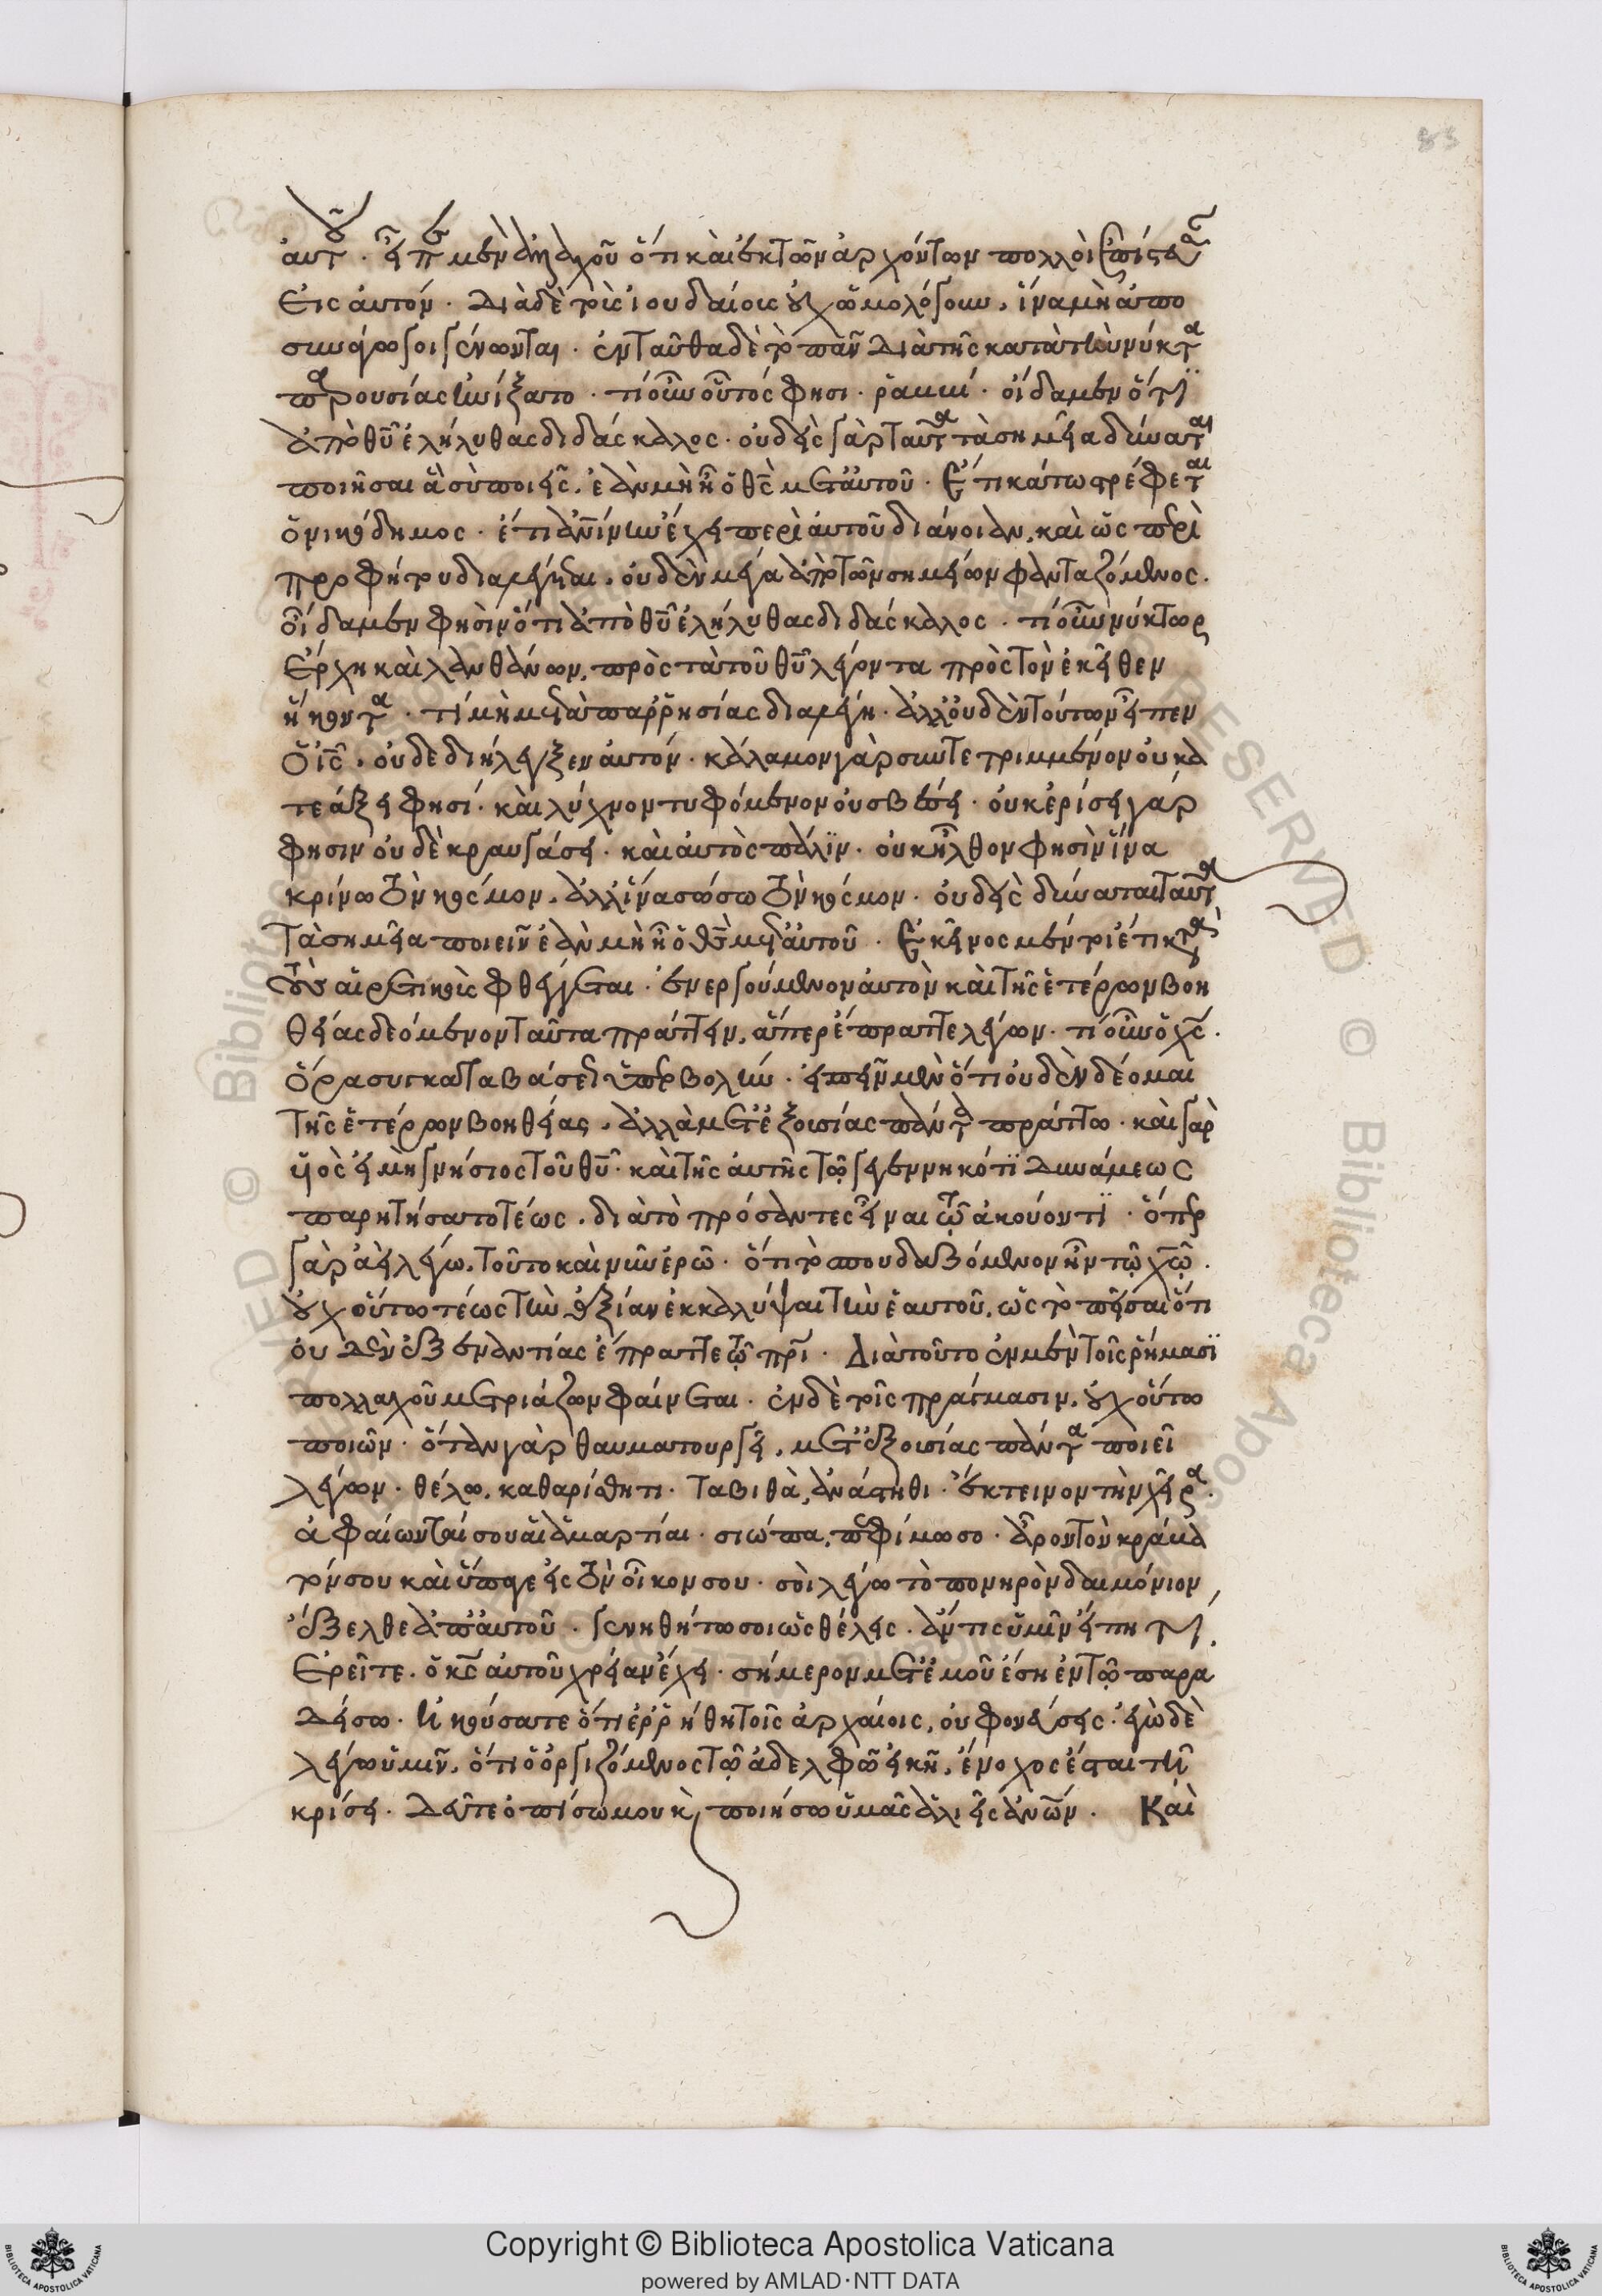 αὐτοῦ. εἶπε μὲν ἀλλαχοῦ ὅτι καὶ ἐκ τῶν ἀρχόντων πολλοὶ ἐπίστευσαν
εἰς αὐτόν. διὰ δὲ τοὺς ἰουδαίους οὐχ ὡμολόγουν, ἵνα μὴ ἀπο
συνάγωγοι γένωνται. ἐνταῦθα δὲ τὸ πᾶν διὰ τῆς κατὰ τὴν νύκτα
παρουσίας ἠνίξατο. τί οὖν οὗτός φησι. ῥαββί. οἴδαμεν ὅτι
ἀπὸ θυ ἐλήλυθας διδάσκαλος. οὐδεὶς γὰρ ταῦτα τὰ σημεῖα δύναται
ποιῆσαι ἃ σὺ ποιεῖς, ἐὰν μὴ ἦ ὁ θς μετ' αὐτοῦ. Ἔτι κάτω στρέφεται
ὁ νικόδημος. ἔτι ἀνίνην ἔχει περὶ αὐτοῦ διάνοιαν, καὶ ὡς περὶ
προφήτου διαλέγεται, οὐδὲν μέγα ἀπὸ τῶν σημείων φανταζόμενος.
οἴδαμεν φησὶν ὅτι ἀπὸ θυ ἐλήλυθας διδάσκαλος. τί οὖν νύκτωρ
ἔρχη καὶ λανθάνων, πρὸς τὰ τοῦ θυ λέγοντα πρὸς τὸν ἐκεῖθεν
ἥκοντα. τί μὴ μετὰ παρρησίας διαλέγη. ἀλλ' οὐδὲν τούτων εἶπεν
ὁ ις. οὐδε διήλεγξεν αὐτόν. κάλαμον γὰρ συντετριμμένον οὐ κα
τεάξει φησί. καὶ λύχνον τυφόμενον οὐ σβέσει. οὐκ ἐρίσει γάρ
φησιν οὐδὲ κραυγάσει. καὶ αὐτὸς πάλιν. οὐκ ἦλθον φησὶν ἵνα
κρίνω τὸν κόσμον, ἀλλ' ἵνα σώσω τὸν κόσμον. οὐδεὶς δύναται ταῦτα
τὰ σημεῖα ποιεῖν ἐὰν μὴ ἦ ὁ θς μετ' αὐτοῦ. Ἐκεῖνος μέντοι ἔτι κατὰ
τοὺς αἱρετικοὺς φθέγγεται. ἐνεργούμενον αὐτὸν καὶ τῆς ἑτέρων βοη
θείας δεόμενον ταῦτα πράττειν, ἅπερ ἔπραττε λέγων. τί οὖν ὁ χς.
ὅρα συγκαταβάσεως ὑπερβολήν. εἰπεῖν μὲν ὅτι οὐδὲν δέομαι
τῆς ἑτέρων βοηθείας, ἀλλὰ μετ' ἐξουσίας πάντα πράττω. καὶ γὰρ
υἱός εἰμι γνήσιος τοῦ θυ. καὶ τῆς αὐτῆς τῶ γεγεννηκότι δυνάμεως
παρητήσατο τέως, διὰ τὸ πρόσαντες εἶναι τῶ ἀκούοντι. ὅπερ
γὰρ ἀεὶ λέγω, τοῦτο καὶ νῦν ἐρῶ. ὅτι τὸ σπουδαζόμενον ἦν τῶ χω.
οὐχ οὕτω τέως τὴν ἀξίαν ἐκκαλύψαι τὴν ἑαυτοῦ, ὡς τὸ πεῖσαι ὅτι
οὐδὲν ἐξ ἐναντίας ἔπραττε τῶ πρι. Διὰ τοῦτο ἐν μὲν τοῖς ῥήμασι
πολλαχοῦ μετριάζων φαίνεται. ἐν δὲ τοῖς πράγμασιν, οὐχ οὕτω
ποιῶν. ὅταν γὰρ θαυματουργῆ, μετ' ἐξουσίας πάντα ποιεῖ
λέγων. θέλω, καθαρίσθητι. ταβιθὰ, ἀνάστηθι. ἔκτεινον τὴν χεῖρα.
ἀφαίωνταί σου αἱ ἁμαρτίαι. σιώπα, πεφίμωσο. ἆρον τὸν κράββα
τόν σου καὶ ὕπαγε εἰς τὸν οἶκον σου. σοὶ λέγω τὸ πονηρὸν δαιμόνιον,
ἔξελθε ἀπ' αὐτοῦ. γενηθήτω σοι ὡς θέλεις. ἄν τις ὑμῖν εἴπη τι,
ἐρεῖτε, ὁ κς αὐτοῦ χρείαν ἔχει. σήμερον μετ' ἐμοῦ ἔση ἐν τῶ παρα
δείσω. ἠκούσατε ὅτι ἐρρήθη τοῖς ἀρχαίοις, οὐ φονεύσεις. ἐγὼ δὲ
λέγω ὑμῖν, ὅτι ὁ ὀργιζόμενος τῶ ἀδελφῶ εἰκῆ, ἔνοχος ἔσται τῆ
κρίσει. δεῦτε ὀπίσω μου κ ποιήσω ὑμᾶς ἁλιεῖς ἀνων. Καὶ
Copyright © Biblioteca Apostolica Vaticana
powered by AMLAD·NTT DATA